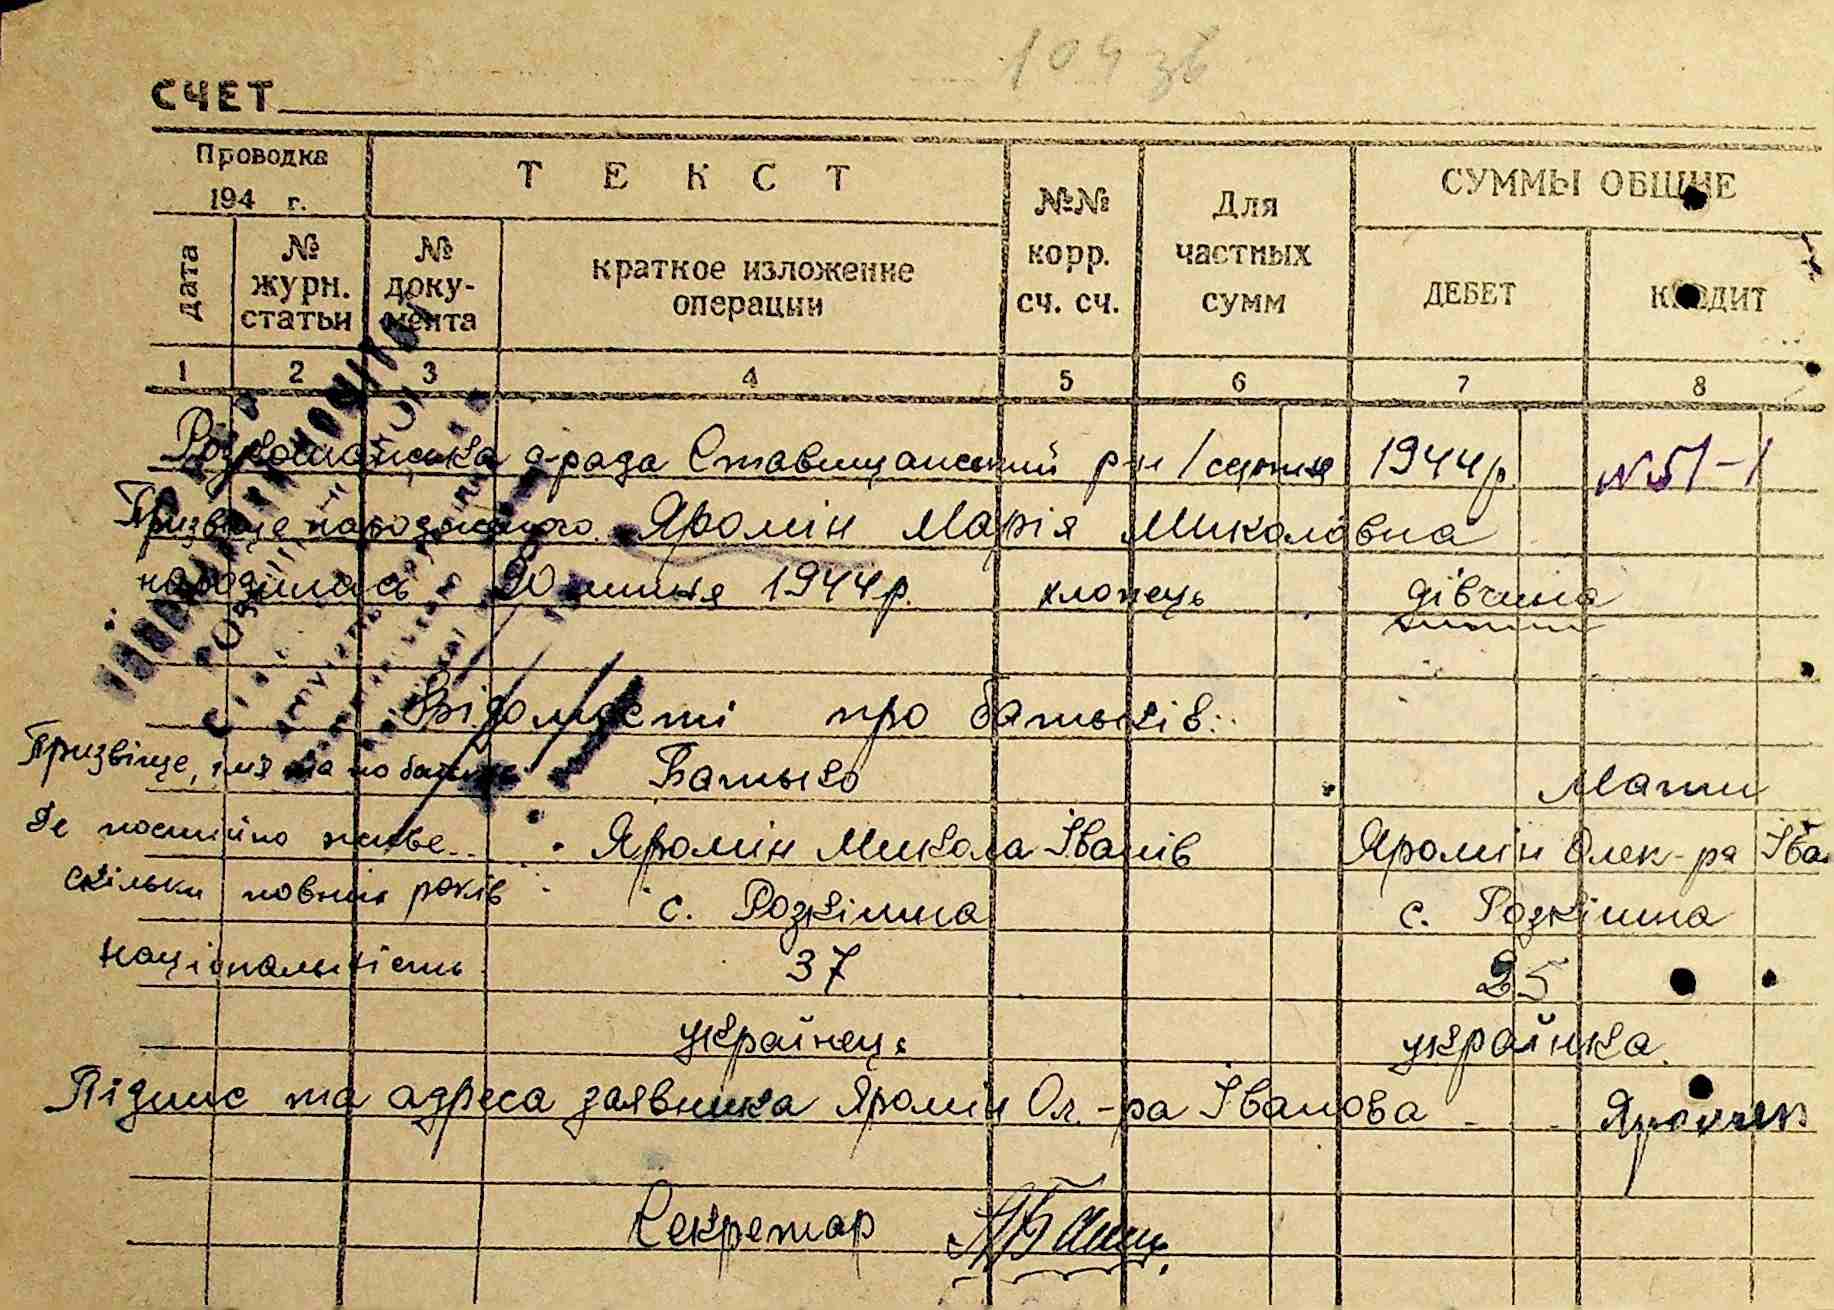 104 зв
СЧЕТ
Проводка
194 г.
ТЕКСТ
№№ корр. сч. сч.
Для частных сумм
СУММЫ ОБЩИЕ
Дата
№ журн. статьи
№ документа
краткое изложение операции
ДЕБЕТ
КРЕДИТ
1 2 3 4 5 6 7 8
с-рада Ставищанський р-н / серпня 1944р. №51-1
Призвіще народженого Яромін Марія Миколавна
народилась 20 липня 1944р. хлопець дівчина
Відомості про батьків:
Призвіще, імя та по батьк Батько Мати
Де постійно живе Яромін Микола Іванів Яромін Олек-ра Іва
скільки повних років с. Розкішна с. Розкішна
Національність 37 25
українець українка.
Підпис та адреса заявника Яромін Ол.-ра Іванова
Секретар